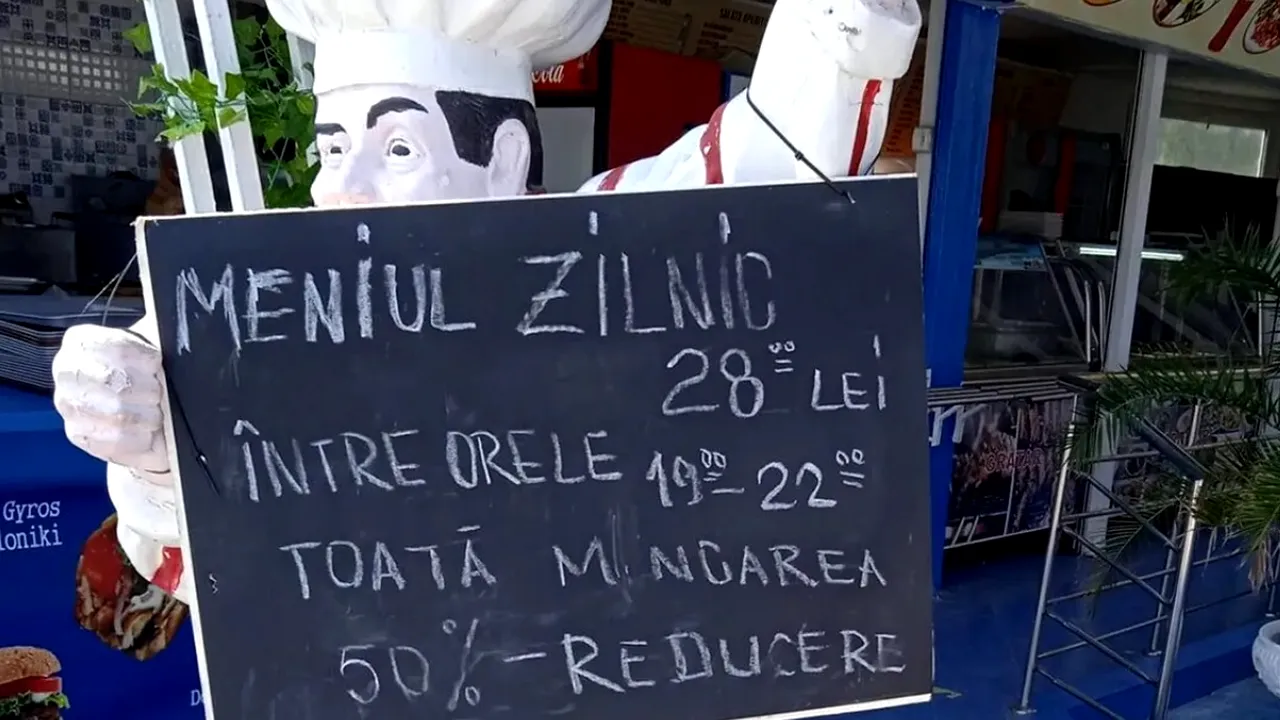 MENIUL ZILNIC
28⁰⁰ LEI
ÎNTRE ORELE 19⁰⁰–22⁰⁰
TOATĂ MINCAREA
50%–REDUCERE
Gyros